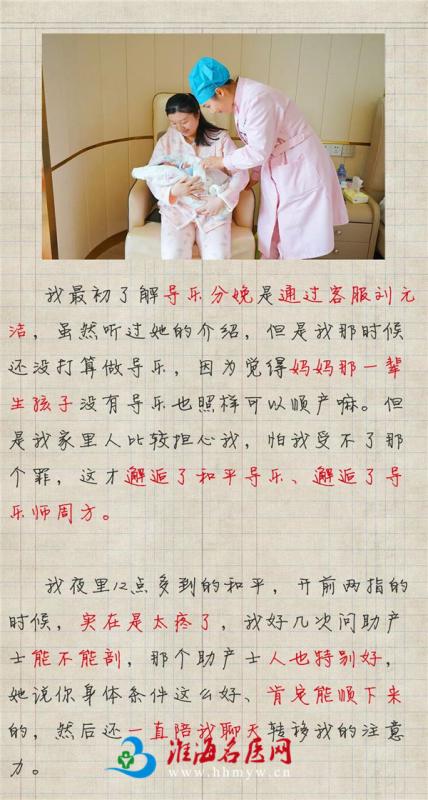 我最初了解导乐分娩是通过客服刘元
洁，虽然听过她的介绍，但是我那时候
还没打算做导乐，因为觉得妈妈那一辈
生孩子没有导乐也照样可以顺产嘛。但
是我家里人比较担心我，怕我受不了那
个罪，这才邂逅了和平导乐、邂逅了导
乐师周方。
我夜里12点多到的和平，开前两指的
时候，实在是太疼了，我好几次问助产
士能不能剖，那个助产士人也特别好，
她说你身体条件这么好、肯定能顺下来
的，然后还一直陪我聊天转移我的注意
力。
淮海名医网
www.hhmyw.cn